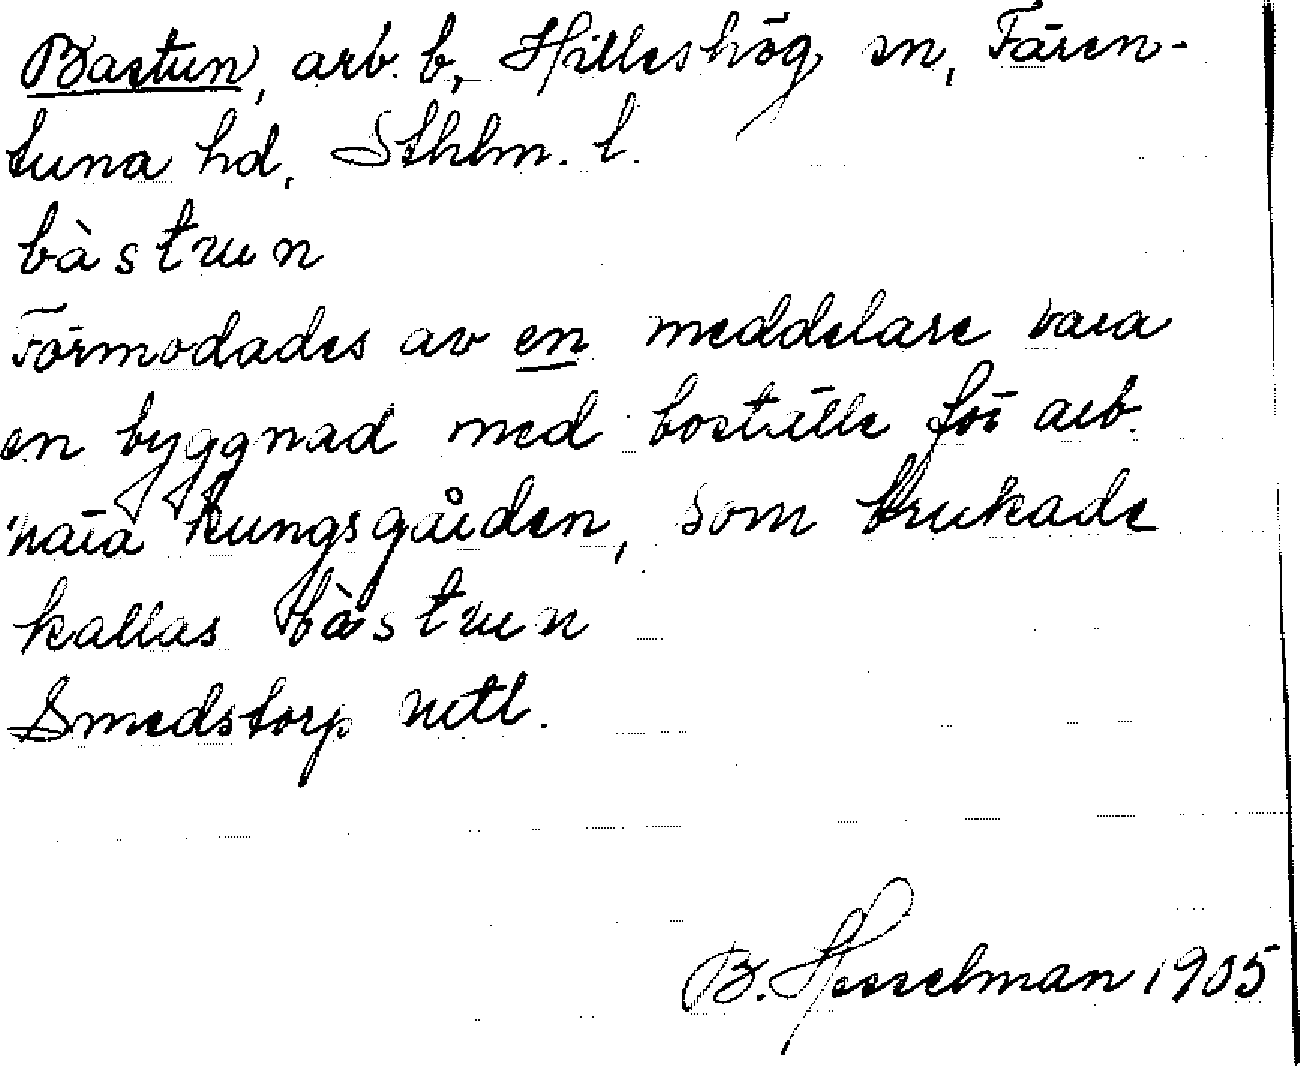 Bastun, arb. b, Hilleshög sn, Fären-
tuna hd, Sthlm. l.
bàstuun
Förmodades av en meddelare vara
en byggnad med boställe för arb.
nära Kungsgården, som brukade
kallas bàstuun
Smedstorp utl.
B. Hesselman 1905